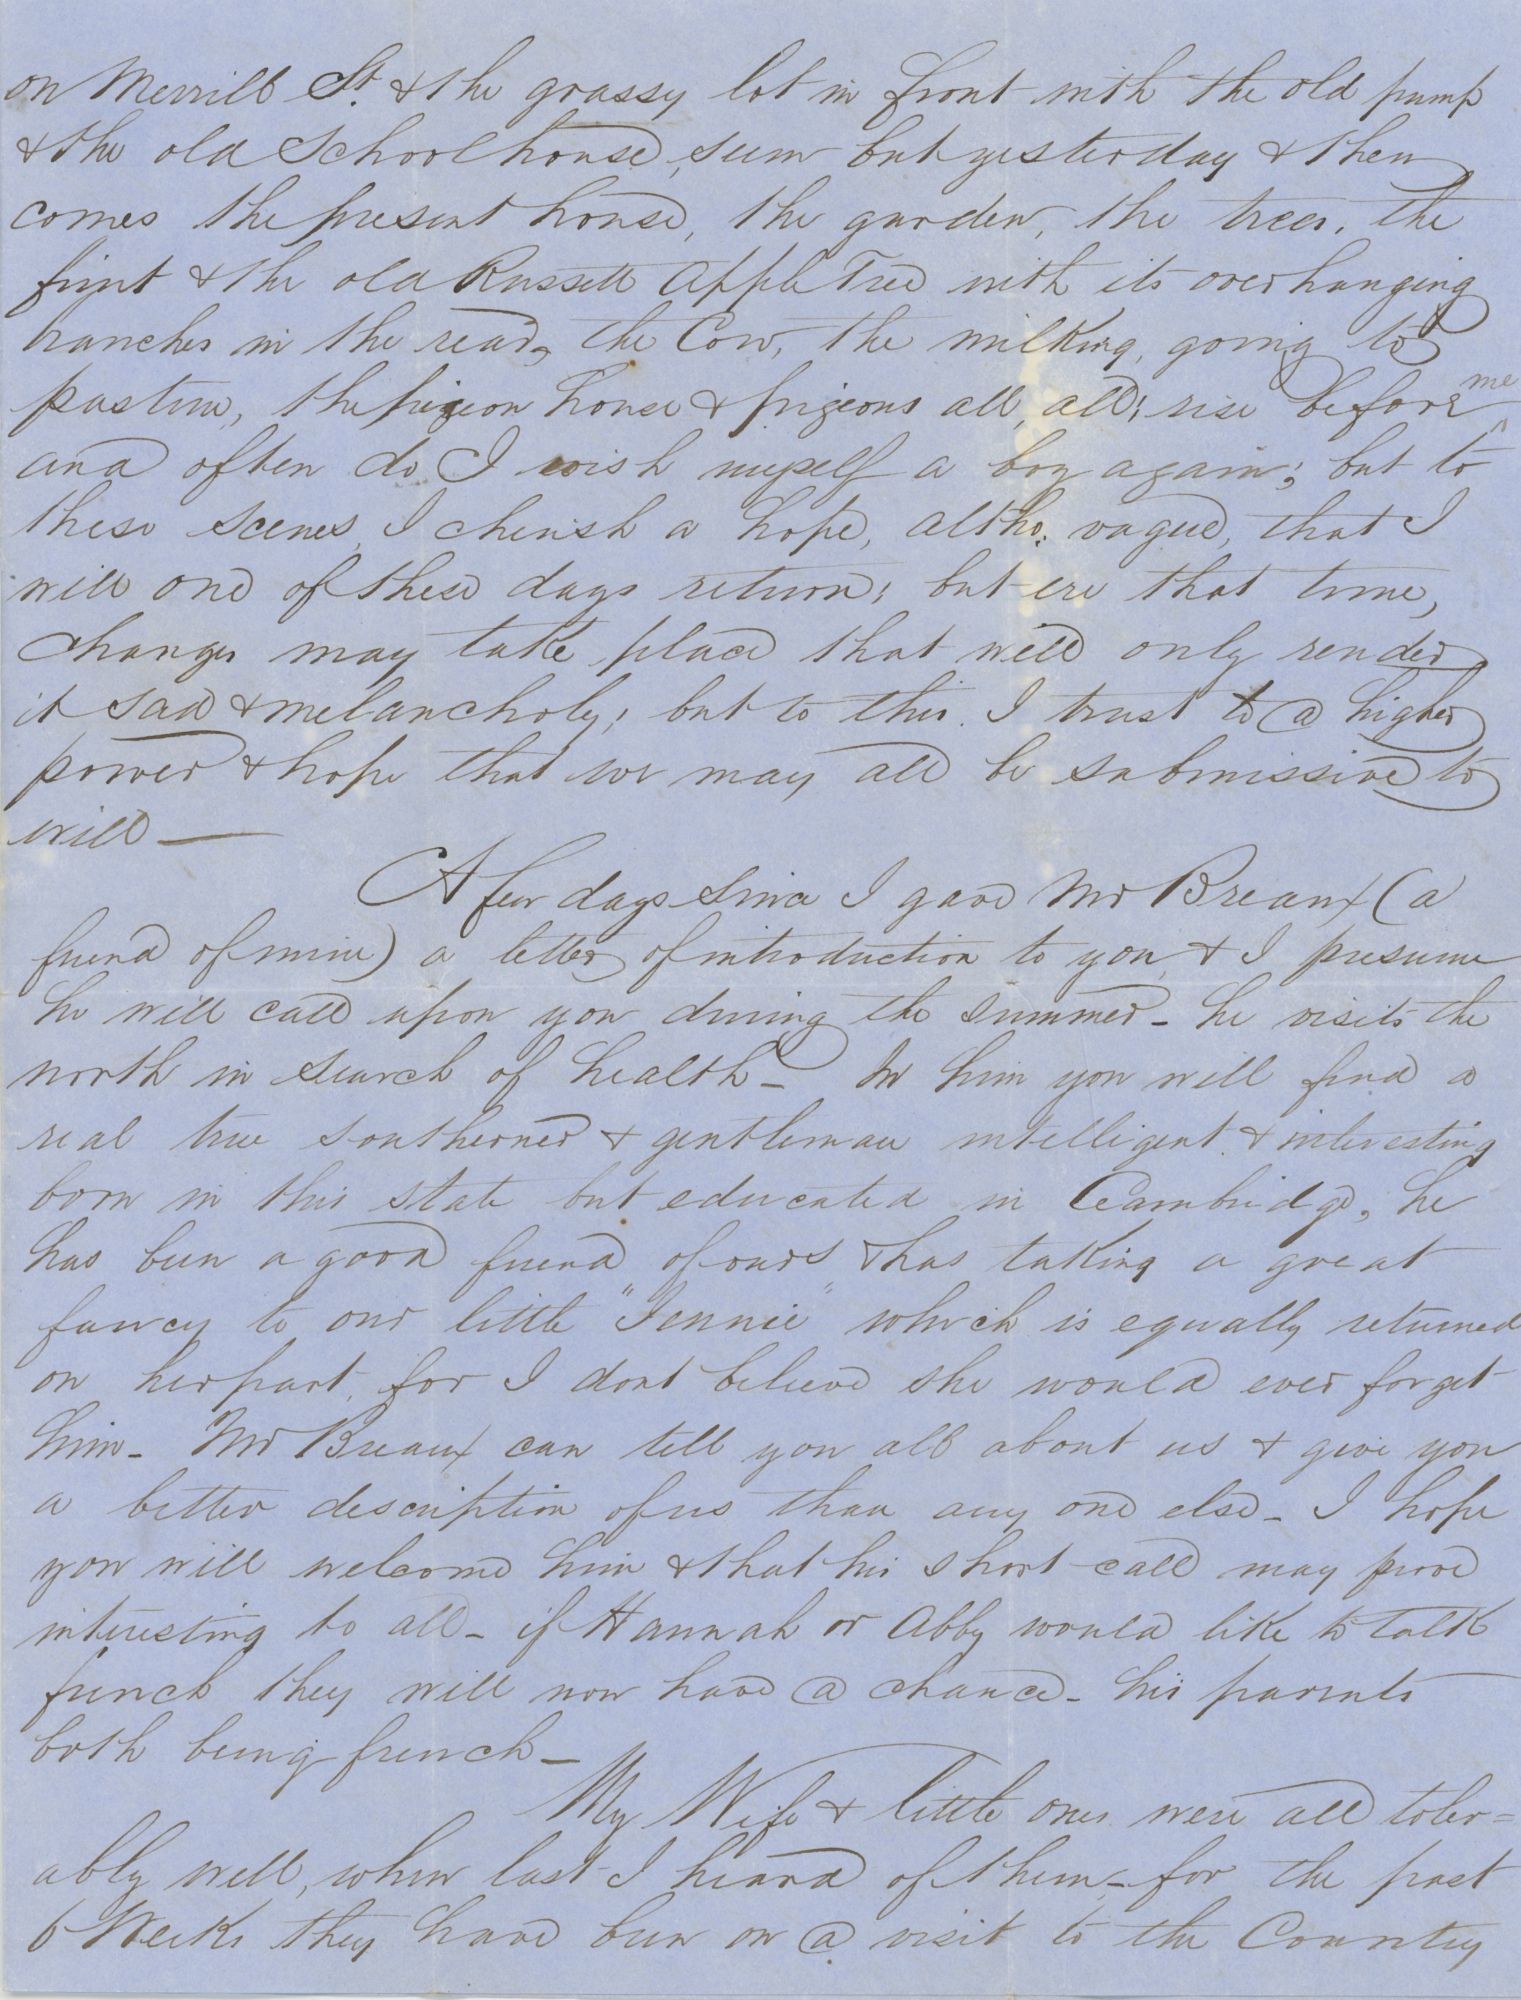 on Merrill St. & the grassy lot in front with the old pump
& the old Schoolhouse, seem but yesterday & then
comes the present house, the garden, the trees, the
fruit & the old Russett Apple Tree with its overhanging
branches in the rear, the Cow, the milking, going to
pasture, the pigeon house & pigeons all, all; rise before me
and often do I wish myself a boy again; but to
these scenes, I cherish a hope, altho. vague, that I
will one of these days return; but ere that time,
changes may take place that will only render
it sad & melancholy; but to this I trust to a higher
power & hope that we may all be submissive to
will —
A few days since I gave Mr Breaux (a
friend of mine) a letter of introduction to you, & I presume
he will call upon you during the summer - he visits the
north in search of health - In him you will find a
real true southerner & gentleman intelligent & interesting
born in this state but educated in Cambridge, he
has been a good friend of ours & has taking a great
fancy to our little "Jennie" which is equally returned
on her part, for I dont believe she would ever forget
him - Mr Breaux can tell you all about us & give you
a better description of us than any one else - I hope
you will welcome him & that his short call may prove
interesting to all - if Hannah or Abby would like to talk
french they will now have a chance - his parents
both being french -
My Wife & little ones were all toler=
ably well, when last I heard of them, - for the past
6 Weeks they have been on a visit to the Country